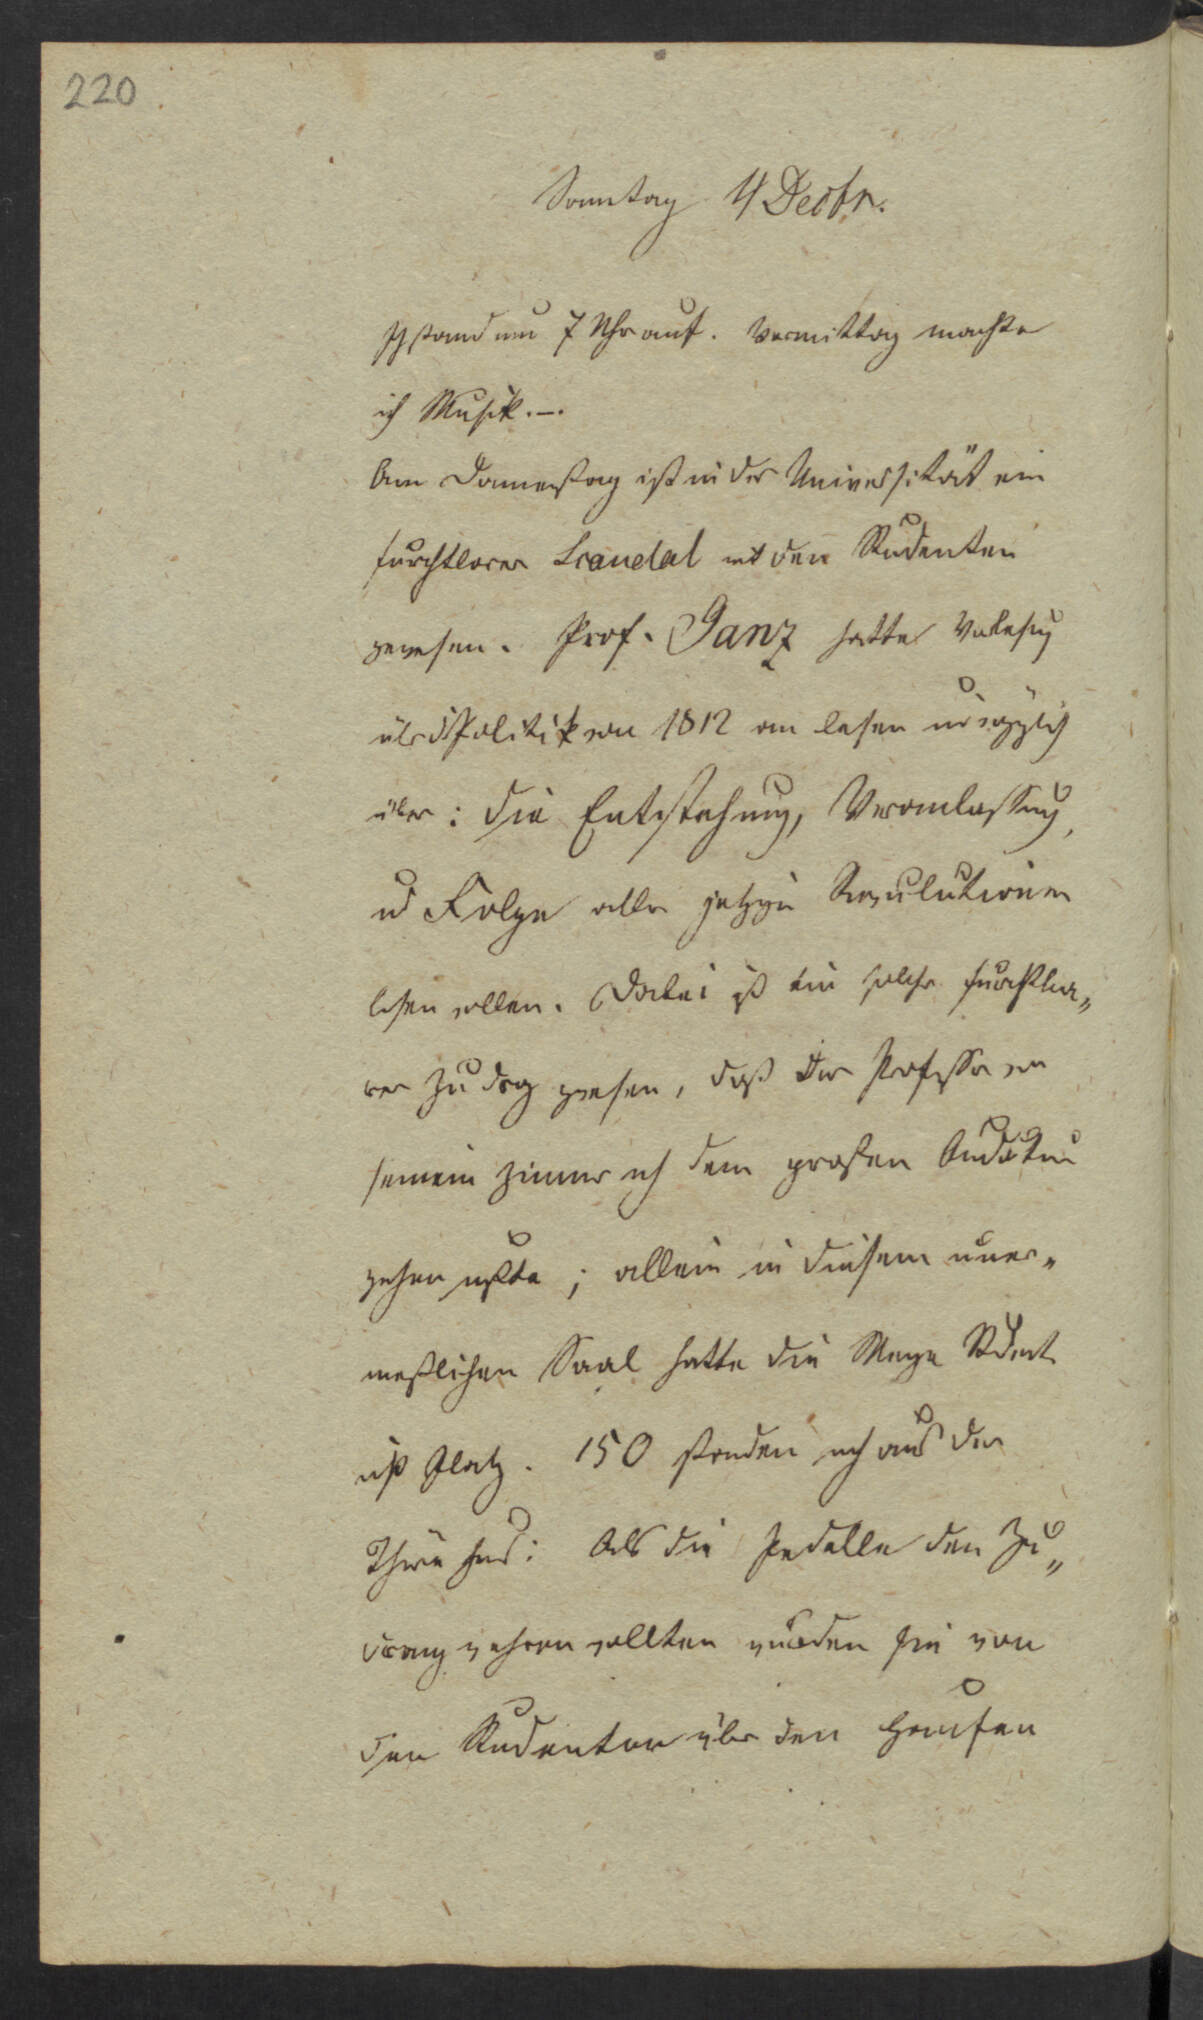 220
Sonntag 4 Decbr.
Ich stand um 7 Uhr auf. Vormittag machte
ich Musik.–.
Am Donnerstag ist in der Universität ein
furchtbarer Scandal mit den Studenten
gewesen. Prof. Ganz hatte Vorlesung
über Politik von 1812 an lesen und
über: die Entstehung, Veranlassung,
und Folge aller jetzigen Revolutionen
lesen wollen. Dabei ist ein solcher furchtba„
rer Zudrang gewesen, daß der Professor von
seinem Zimmer nach dem großen Auditorium
gehen mußte; allein in diesem uner„
meßlichen Saal hatte die Menge Studenten
nicht Platz. 150 standen noch aus der
Thüre heraus: Als die Pedelle den Zu„
drang wehren wollten wurden sie von
den Studenten über den Haufen